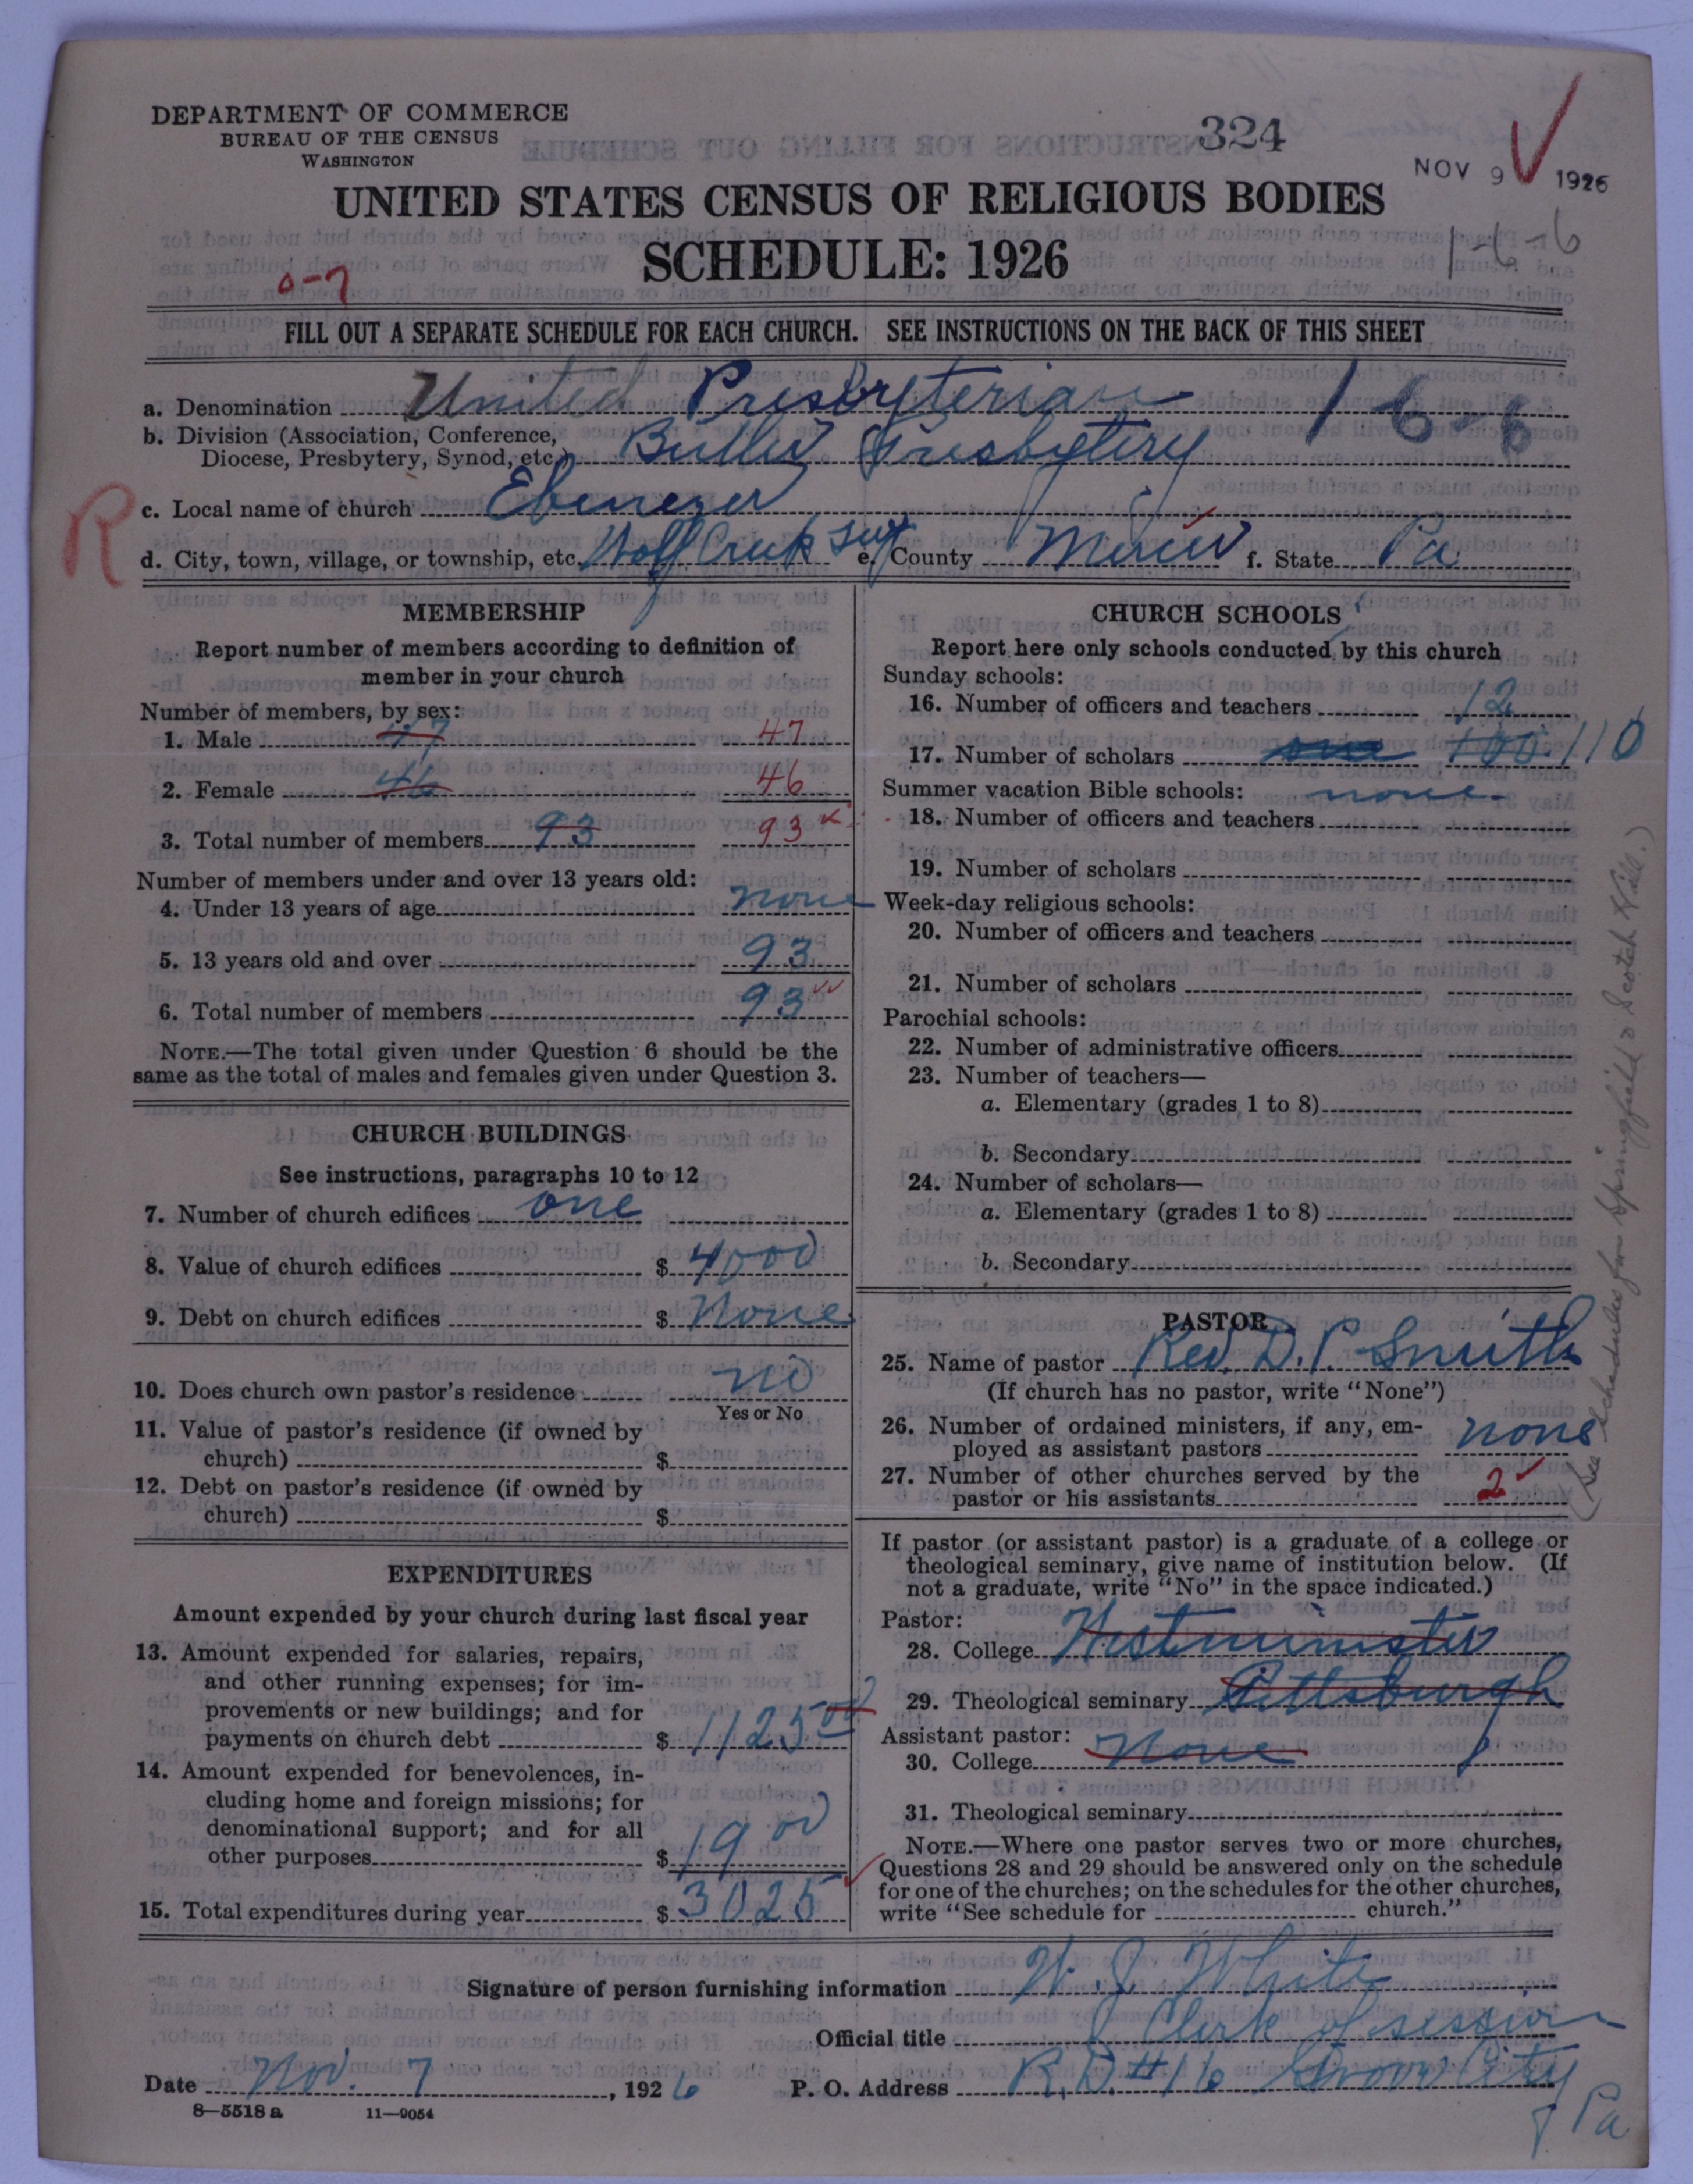 DEPARTMENT OF COMMERCE
BUREAU OF THE CENSUS
WASHINGTON
324
NOV 9 1926
UNITED STATES CENSUS OF RELIGIOUS BODIES
SCHEDULE: 1926
1-6-6
0-7
FILL OUT A SEPARATE SCHEDULE FOR EACH CHURCH. SEE INSTRUCTIONS ON THE BACK OF THIS SHEET
a. Denomination United Presbyterian 1 6-6
b. Division (Association, Conference, Diocese, Presbytery, Synod, etc.) Butler Presbytery
R
c. Local name of church Ebenezer
d. City, town, village, or township, etc. Wolf Creek twp e. County Mercer f. State Pa
MEMBERSHIP
Report number of members according to definition of
member in your church
Number of members, by sex:
1. Male 47 47
2. Female 46 46
3. Total number of members 93 93
Number of members under and over 13 years old:
4. Under 13 years of age none
5. 13 years old and over 93
6. Total number of members 93
NOTE.—The total given under Question 6 should be the
same as the total of males and females given under Question 3.
CHURCH BUILDINGS
See instructions, paragraphs 10 to 12
7. Number of church edifices one
8. Value of church edifices $ 4000
9. Debt on church edifices $ None
10. Does church own pastor's residence no
Yes or No
11. Value of pastor's residence (if owned by
church) $
12. Debt on pastor's residence (if owned by
church) $
EXPENDITURES
Amount expended by your church during last fiscal year
13. Amount expended for salaries, repairs,
and other running expenses; for im-
provements or new buildings; and for
payments on church debt $ 1125 00
14. Amount expended for benevolences, in-
cluding home and foreign missions; for
denominational support; and for all
other purposes $ 19 00
15. Total expenditures during year $ 3025
CHURCH SCHOOLS
Report here only schools conducted by this church
Sunday schools:
16. Number of officers and teachers 12
17. Number of scholars one 100 110
Summer vacation Bible schools: none
18. Number of officers and teachers
19. Number of scholars
Week-day religious schools:
20. Number of officers and teachers
21. Number of scholars
Parochial schools:
22. Number of administrative officers
23. Number of teachers—
a. Elementary (grades 1 to 8)
b. Secondary
24. Number of scholars—
a. Elementary (grades 1 to 8)
b. Secondary
PASTOR
25. Name of pastor Rev. D. P. Smith
(If church has no pastor, write "None")
26. Number of ordained ministers, if any, em-
ployed as assistant pastors none
27. Number of other churches served by the
pastor or his assistants 2
If pastor (or assistant pastor) is a graduate of a college or
theological seminary, give name of institution below. (If
not a graduate, write "No" in the space indicated.)
Pastor:
28. College Westminster
29. Theological seminary Pittsburgh
Assistant pastor:
30. College None
31. Theological seminary
NOTE.—Where one pastor serves two or more churches,
Questions 28 and 29 should be answered only on the schedule
for one of the churches; on the schedules for the other churches,
write "See schedule for church."
(See schedules for Springfield & Scotch Hill.)
Signature of person furnishing information W. J. White
Official title Clerk of session
Date Nov. 7, 1926 P. O. Address R. D. #16 Grove City
Pa
8—5518 a 11—9054